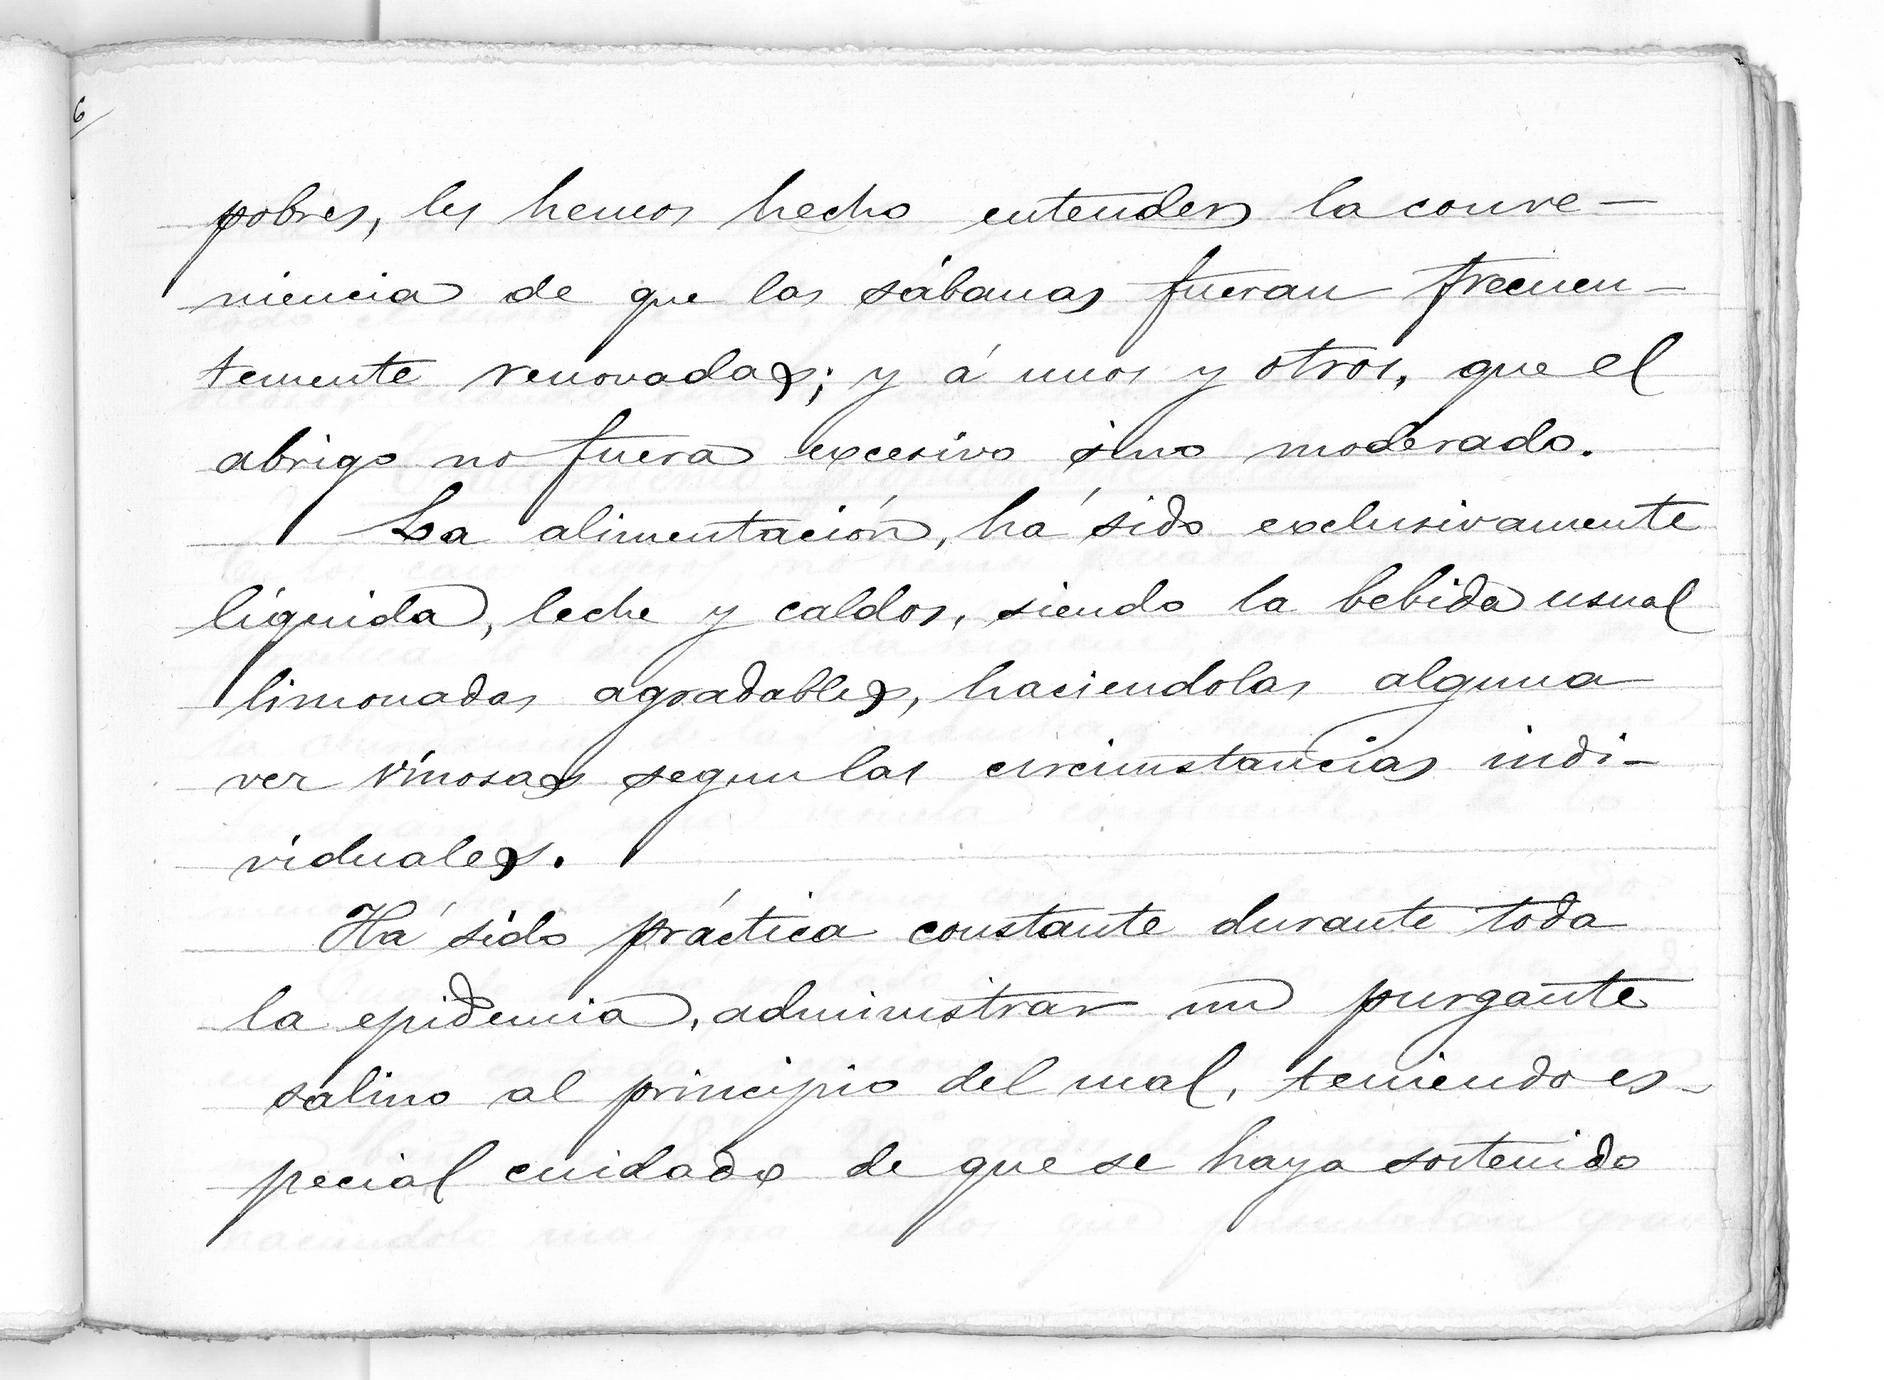 6
pobres, les hemos hecho entender la conve-
niencia de que las sábanas fueran frecuen-
temente renovadas; y á unos y otros, que el
abrigo no fuera excesivo sino moderado.
La alimentación, há sido exclusivamente
líquida, leche y caldos, siendo la bebida usual
limonadas agradables, haciendolas alguna
vez vinosas segun las circunstancias indi-
viduales.
Há sido práctica constante durante toda
la epidemia, administrar un purgante
salino al principio del mal, teniendo es-
pecial cuidado de que se haya sostenido